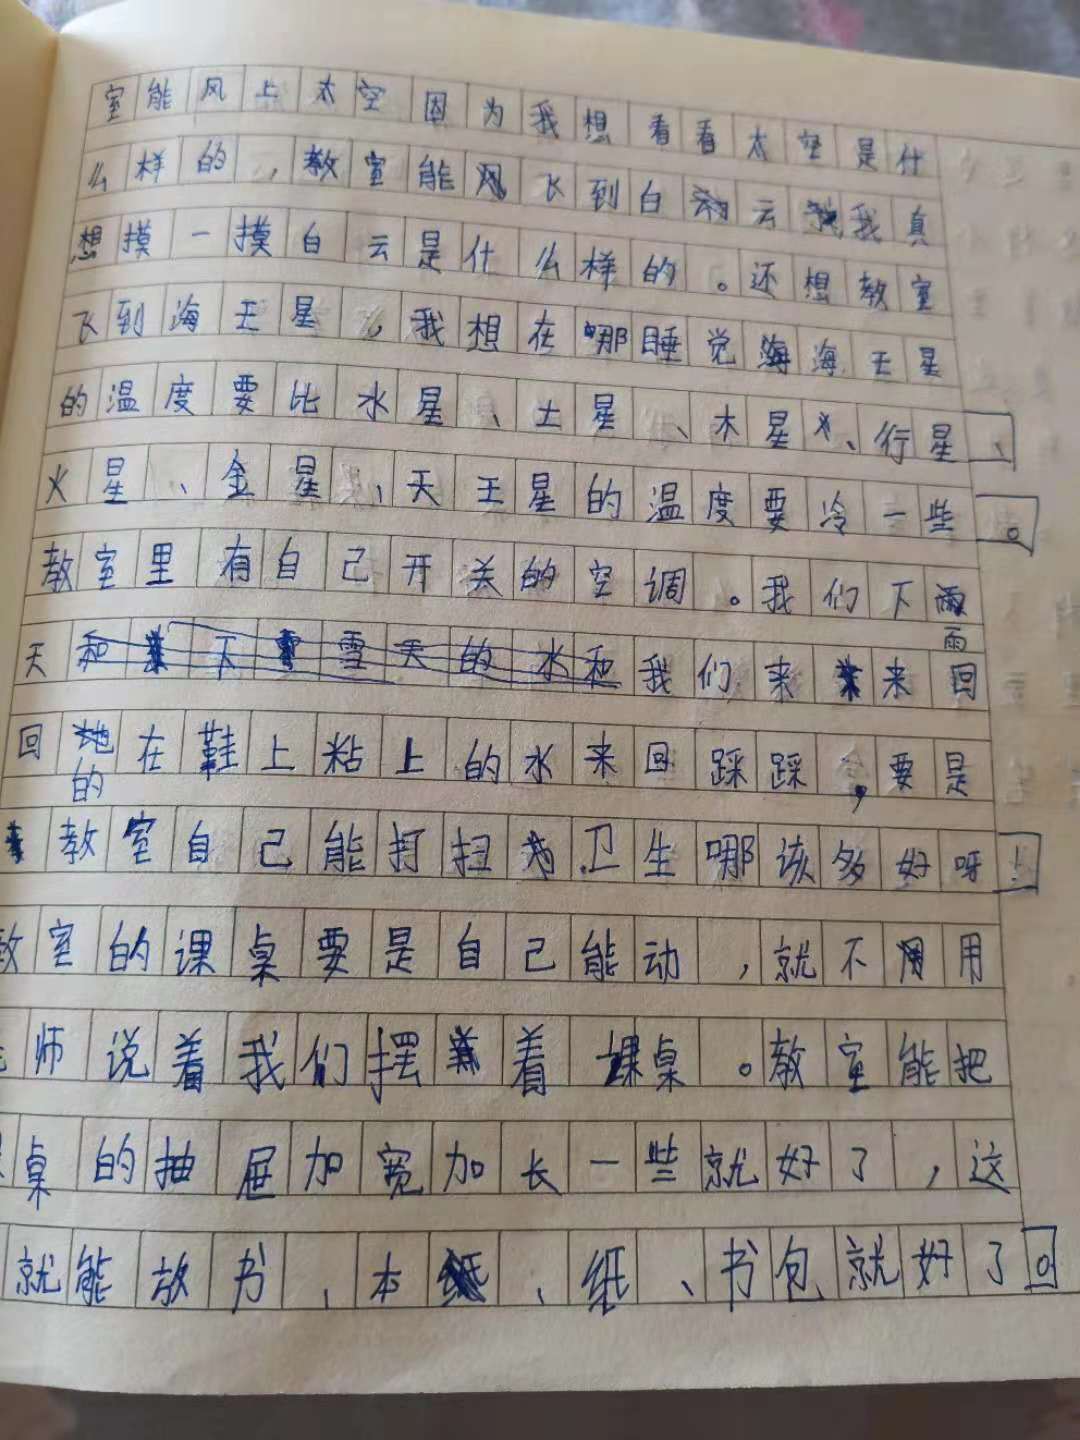 室能风上太空因为我想看看太空是什
么样的，教室能飞到白云我真
想摸一摸白云是什么样的。还想教室
飞到海王星，我想在哪睡觉海海王星
的温度要比水星、土星、木星、行星、
火星、金星、天王星的温度要冷一些。
教室里有自己开关的空调。我们下雨
天我们来来回
回的在鞋上粘上的水来回踩踩，要是
教室自己能打扫卫生哪该多好呀！
教室的课桌要是自己能动，就不用
师说着我们摆着课桌。教室能把
桌的抽屉加宽加长一些就好了，这
就能放书、本、纸、书包就好了。